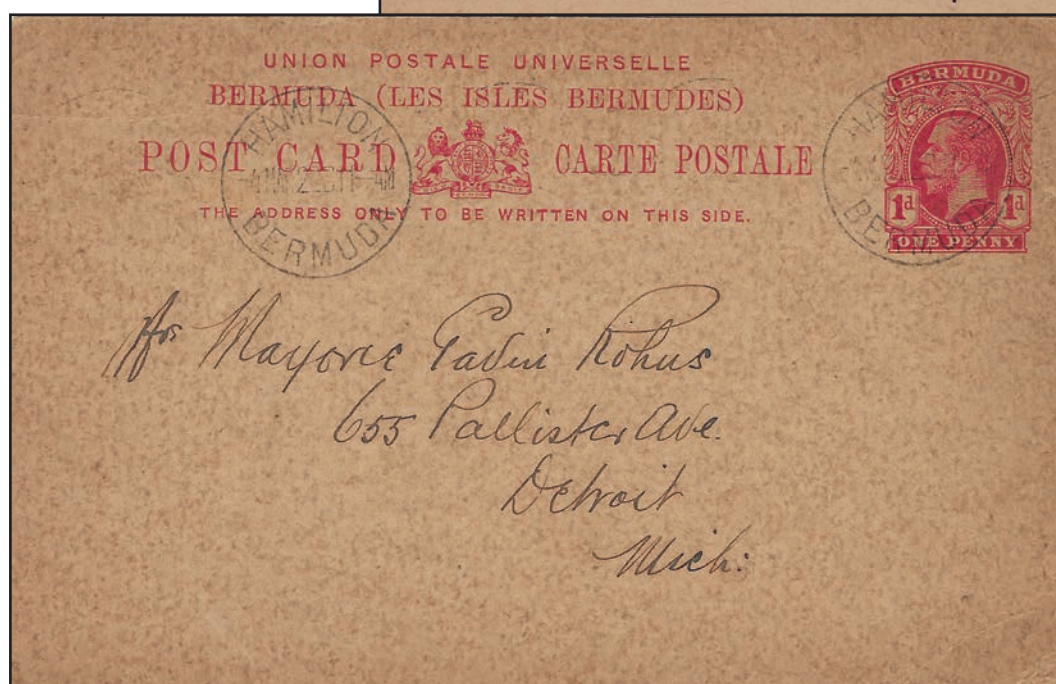 UNION POSTALE UNIVERSELLE
BERMUDA (LES ISLES BERMUDES)
POST CARD CARTE POSTALE
THE ADDRESS ONLY TO BE WRITTEN ON THIS SIDE.
BERMUDA
1d 1d
ONE PENNY
HAMILTON
BERMUDA
HAMILTON
BERMUDA
655 Pallister Ave.
Detroit
Mich: